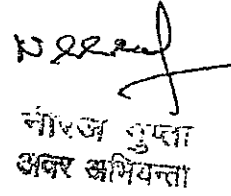 नीरज गुप्ता
अवर अभियन्ता